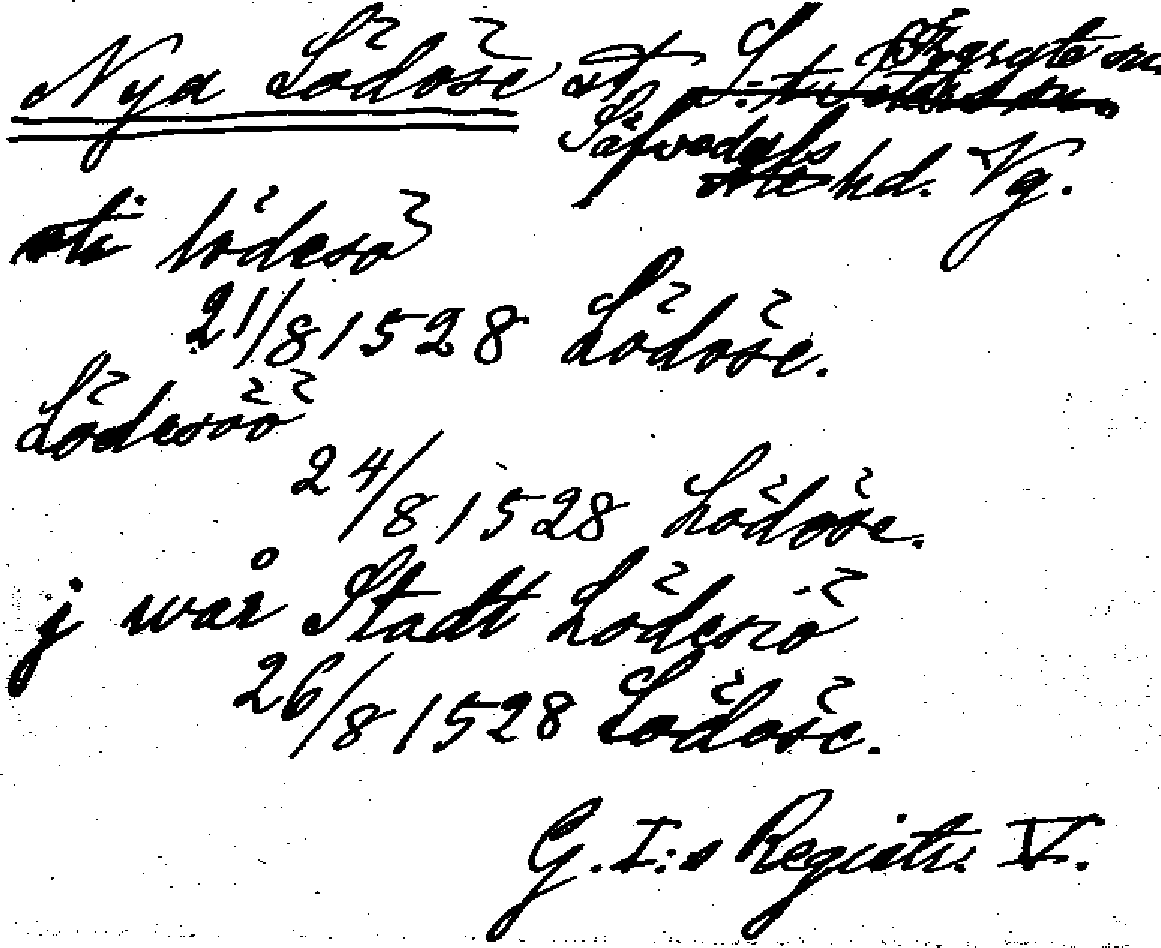 Nya Lödöse st. Ö. Frgryte sn.
Säfvedals hd. Vg.
ti lödesö
21/8 1528 Lödöse.
Lödesöö
24/8 1528 Lödöse.
j wår Stadt Lödesiö
26/8 1528 Lödöse.
G. I:s Registr. V.